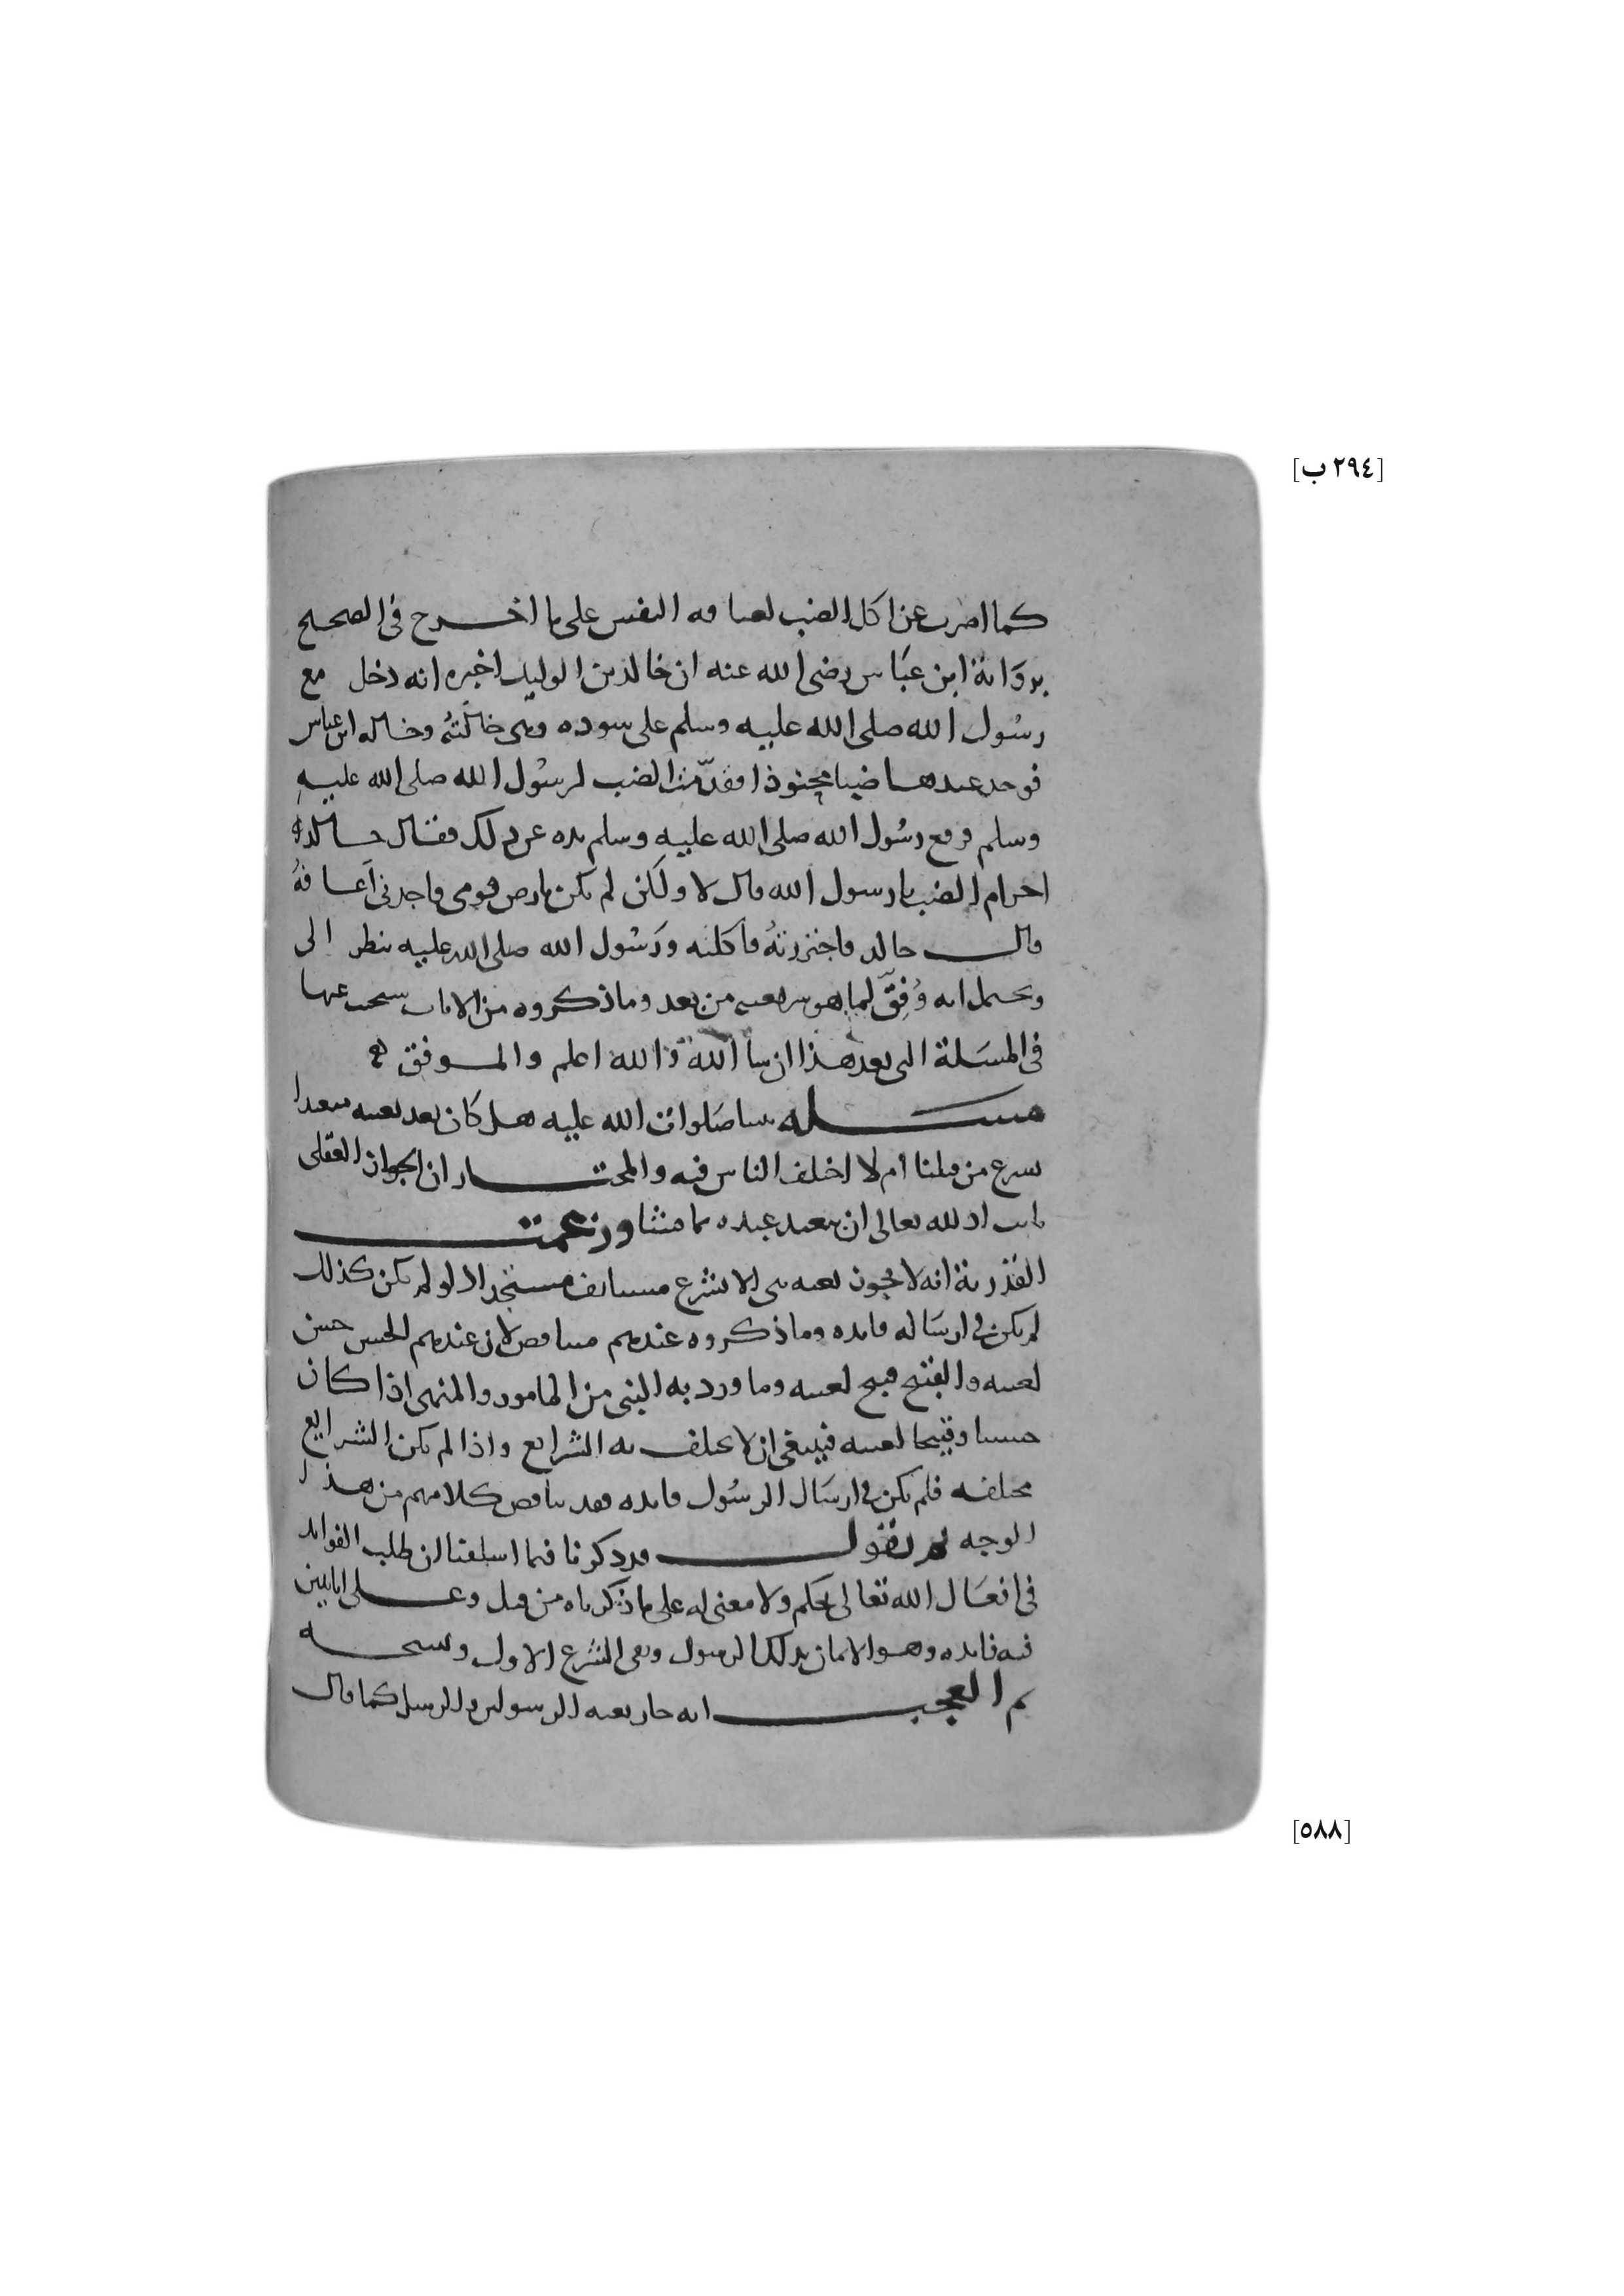 [٢٩٤ ب]
كما اضرب عن اكل الضب لعيافه النفس على ما اخرج فى الصحيح
بروَاية ابن عبَاس رضى الله عنه ان خالد بن الوليد اخبره انه دخل مع
رسُول الله صلى الله عليه وسلم على سوده وهى خالَتهُ وخاله ابن عباس
فوجد عندها ضبا محنوذا فقدّمت الضب لرسُول الله صلى الله عليه
وسلم فرفع رسُول الله صلى الله عليه وسلم يده عن ذلك فقال خالد
احرام الضب يا رسول الله قال لا ولكن لم يكن بارض قومى فاجدنى اَعافهُ
قال خالد فاجتررتهُ فاكلته ورَسُول الله صلى الله عليه ينظر الى
ويحتمل انه وُفِقّ لما هو شريعته من بعد وما ذكروه من الايات سيجيب عنها
فى المسَلة التى بعد هذا ان شا الله وَالله اعلم والموفق
مسَله نبينا صَلوات الله عليه هل كان بعد بعثه متعبدا
بشرع من قبلنا ام لا اختلف الناس فيه والمختار ان الجواز العقلى
ثابت اذ لله تعالى ان يتعبد عبده بما يشا وزعمت
القدرية انه لا يجوز بعثه نبى الا بشرع مستانف مستجد اذ لو لم يكن كذلك
لم يكن فى ارسَاله فايده وما ذكروه عندهم متناقض لان عندهم الحسن حسن
لعينه والقبيح قبيح لعينه وما ورد به النبى من المامور والمنهى اذا كان
حسنا وقبيحا لعينه فينبغى ان لا يختلف به الشرايع واذا لم يكن الشرايع
مختلفه فلم يكن فى ارسَال الرسُول فايده فقد تناقض كلامهم من هذا
الوجه ثم نقول قد ذكرنا فيما اسلفنا ان طلب الفوايد
فى افعَال الله تعالى تحكم ولا معنى له على ما ذكرناه من قبل وعلى
فيه فايده وهو الايمان بذلك الرسول وبقى الشرع الاول ونسخه
ثم العجب انه جاز بعثه الرسولين والرسل كما قال
[٥٨٨]